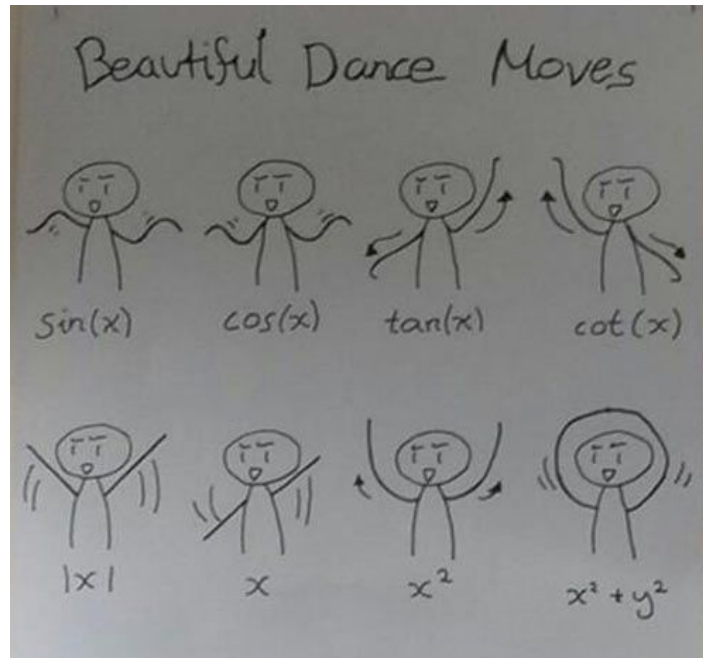 Beautiful Dance Moves
sin(x) cos(x) tan(x) cot(x)
|x| x x² x² + y²